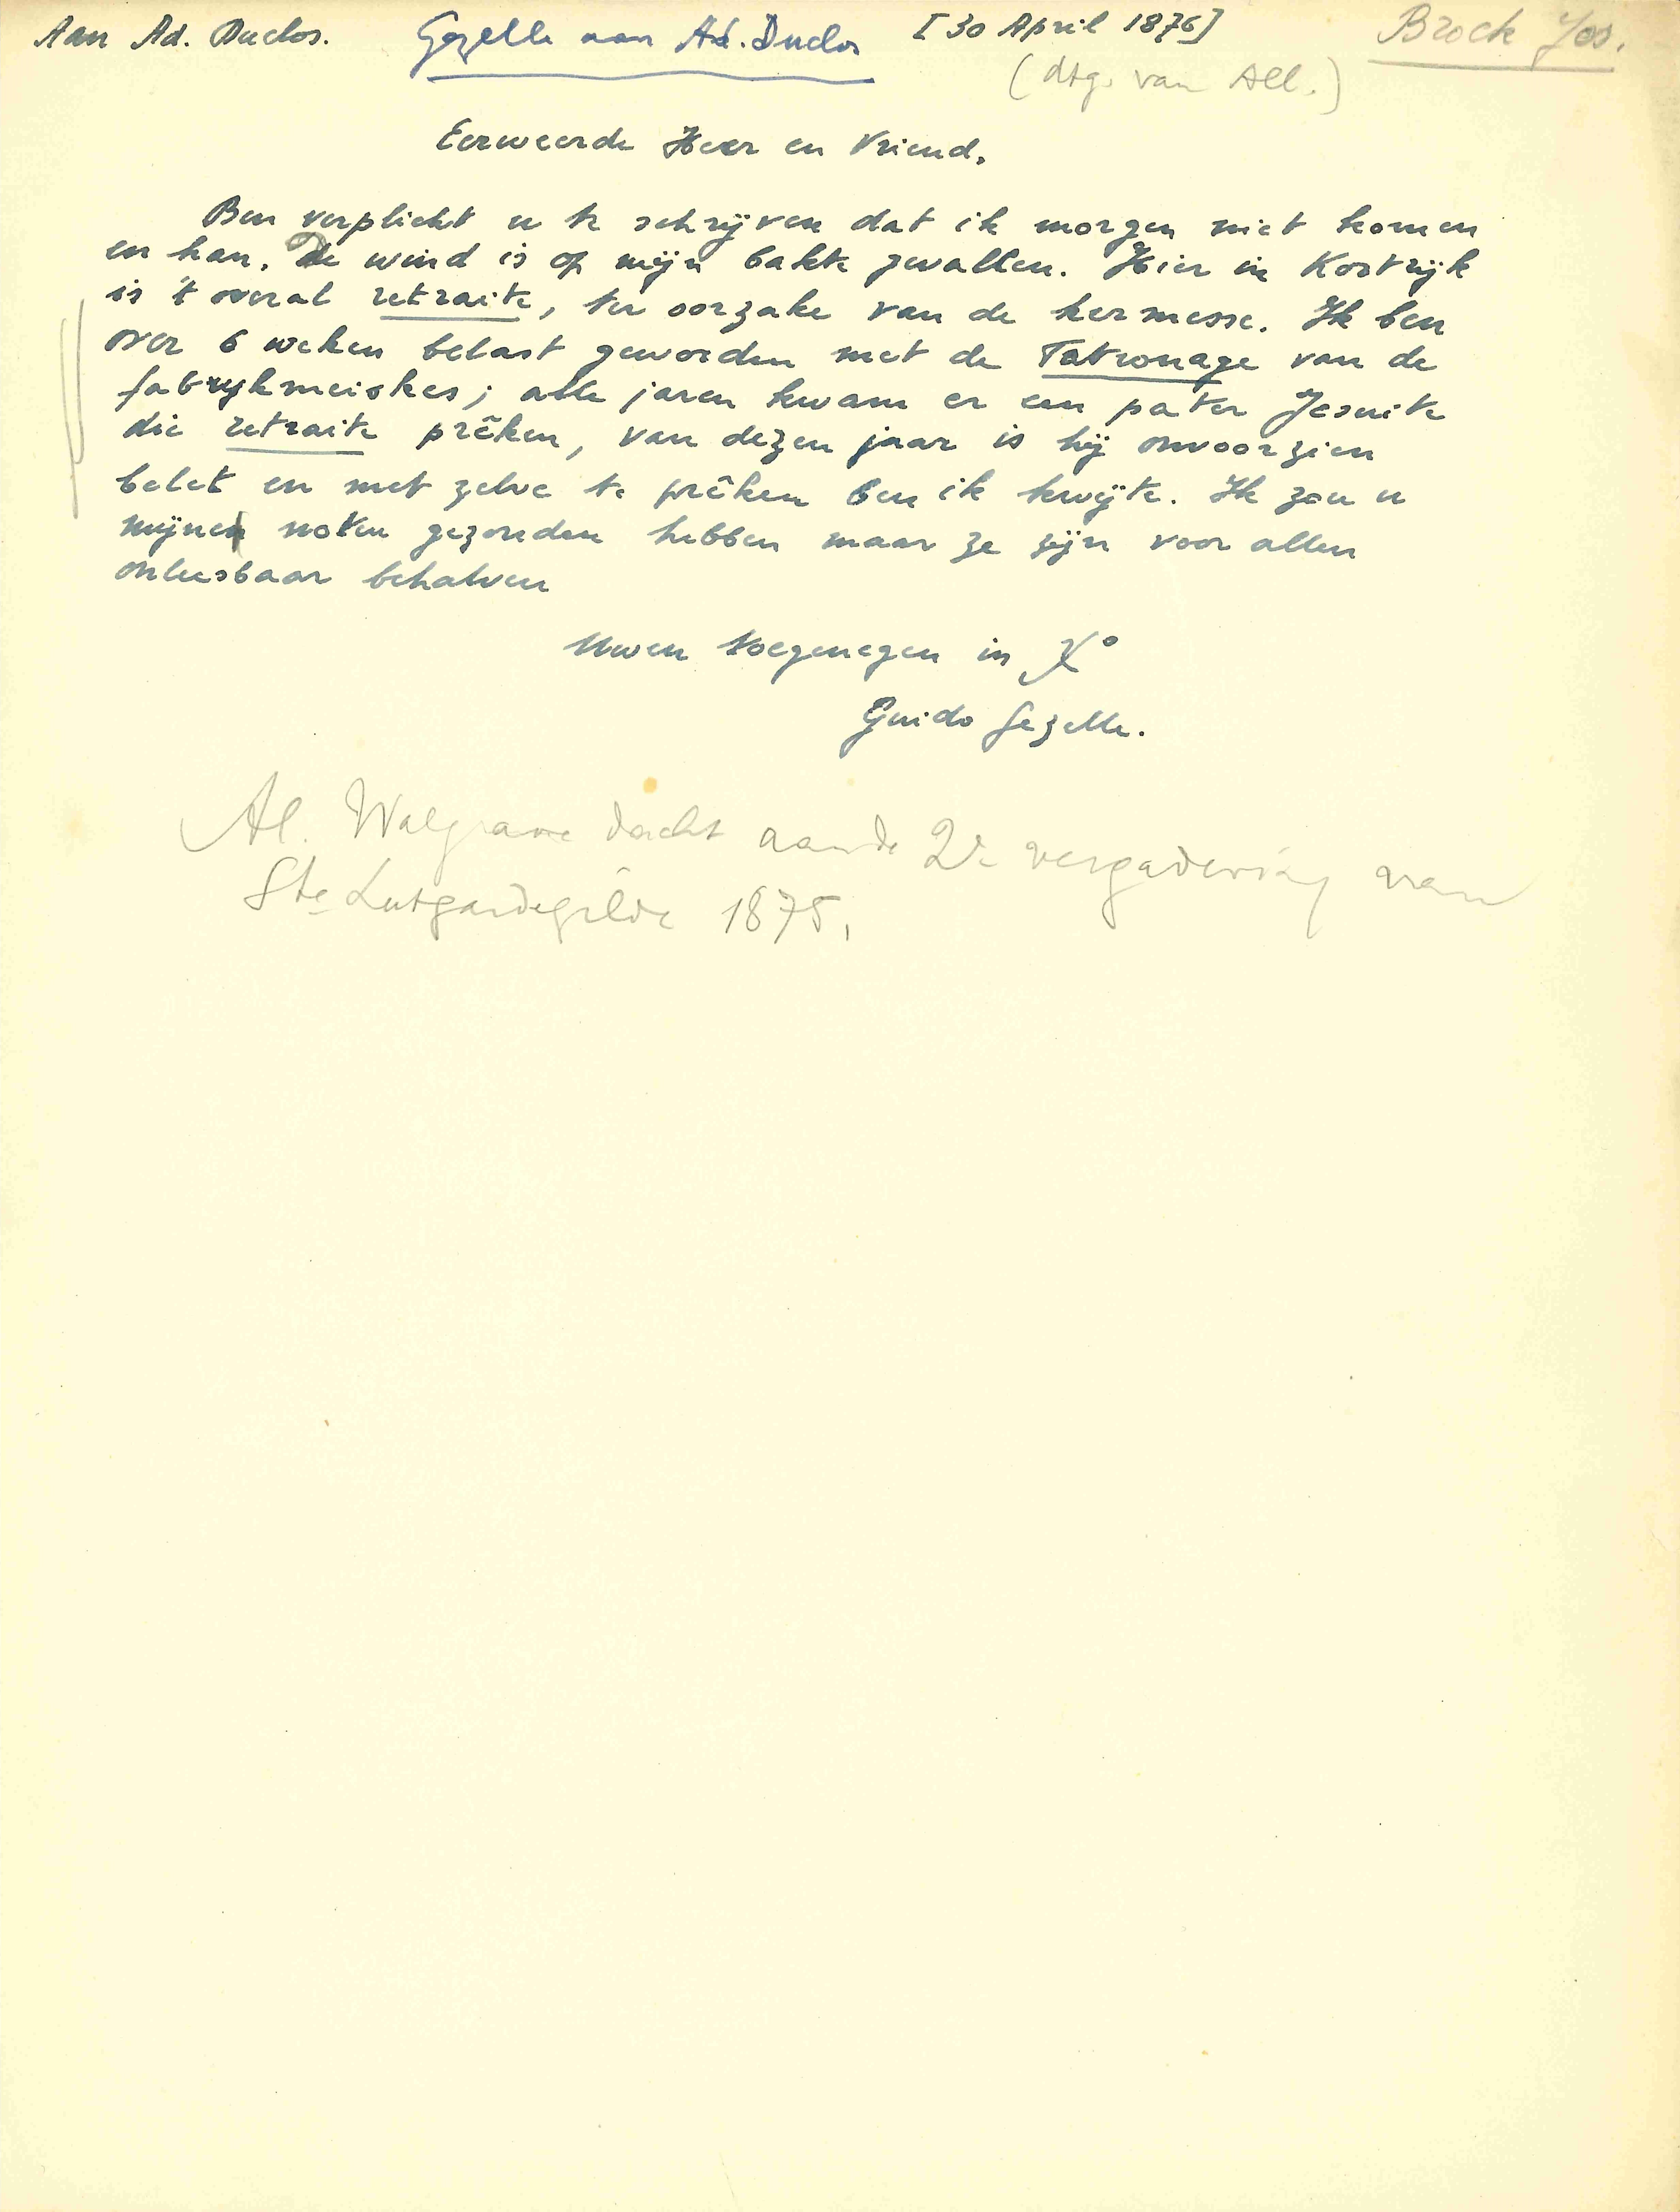 Aan Ad. Duclos. Gezelle aan Ad. Duclos [30 April 1876] Brock Jos.
(dtg. van All.)
Eerweerde Heer en Vriend,
Ben verplicht u te schrijven dat ik morgen niet komen
en kan, De wind is op mijn bakte gevallen. Hier in Kortrijk
is 't overal retraite, ter oorzake van de kermesse. Ik ben
over 6 weken belast geworden met de Patronage van de
fabrijkmeiskes; alle jaren kwam er een pater Jesuite
die retraite prêken, van dezen jaar is hij onvoorzien
belet en met zelve te prêken ben ik kwijte. Ik zou u
mijne noten gezonden hebben maar ze zijn voor allen
onleesbaar behalven
Uwen toegenegen in X°
Guido Gezelle.
Al. Walgrave dacht aan de 2e vergadering van
Ste Lutgardegilde 1875.